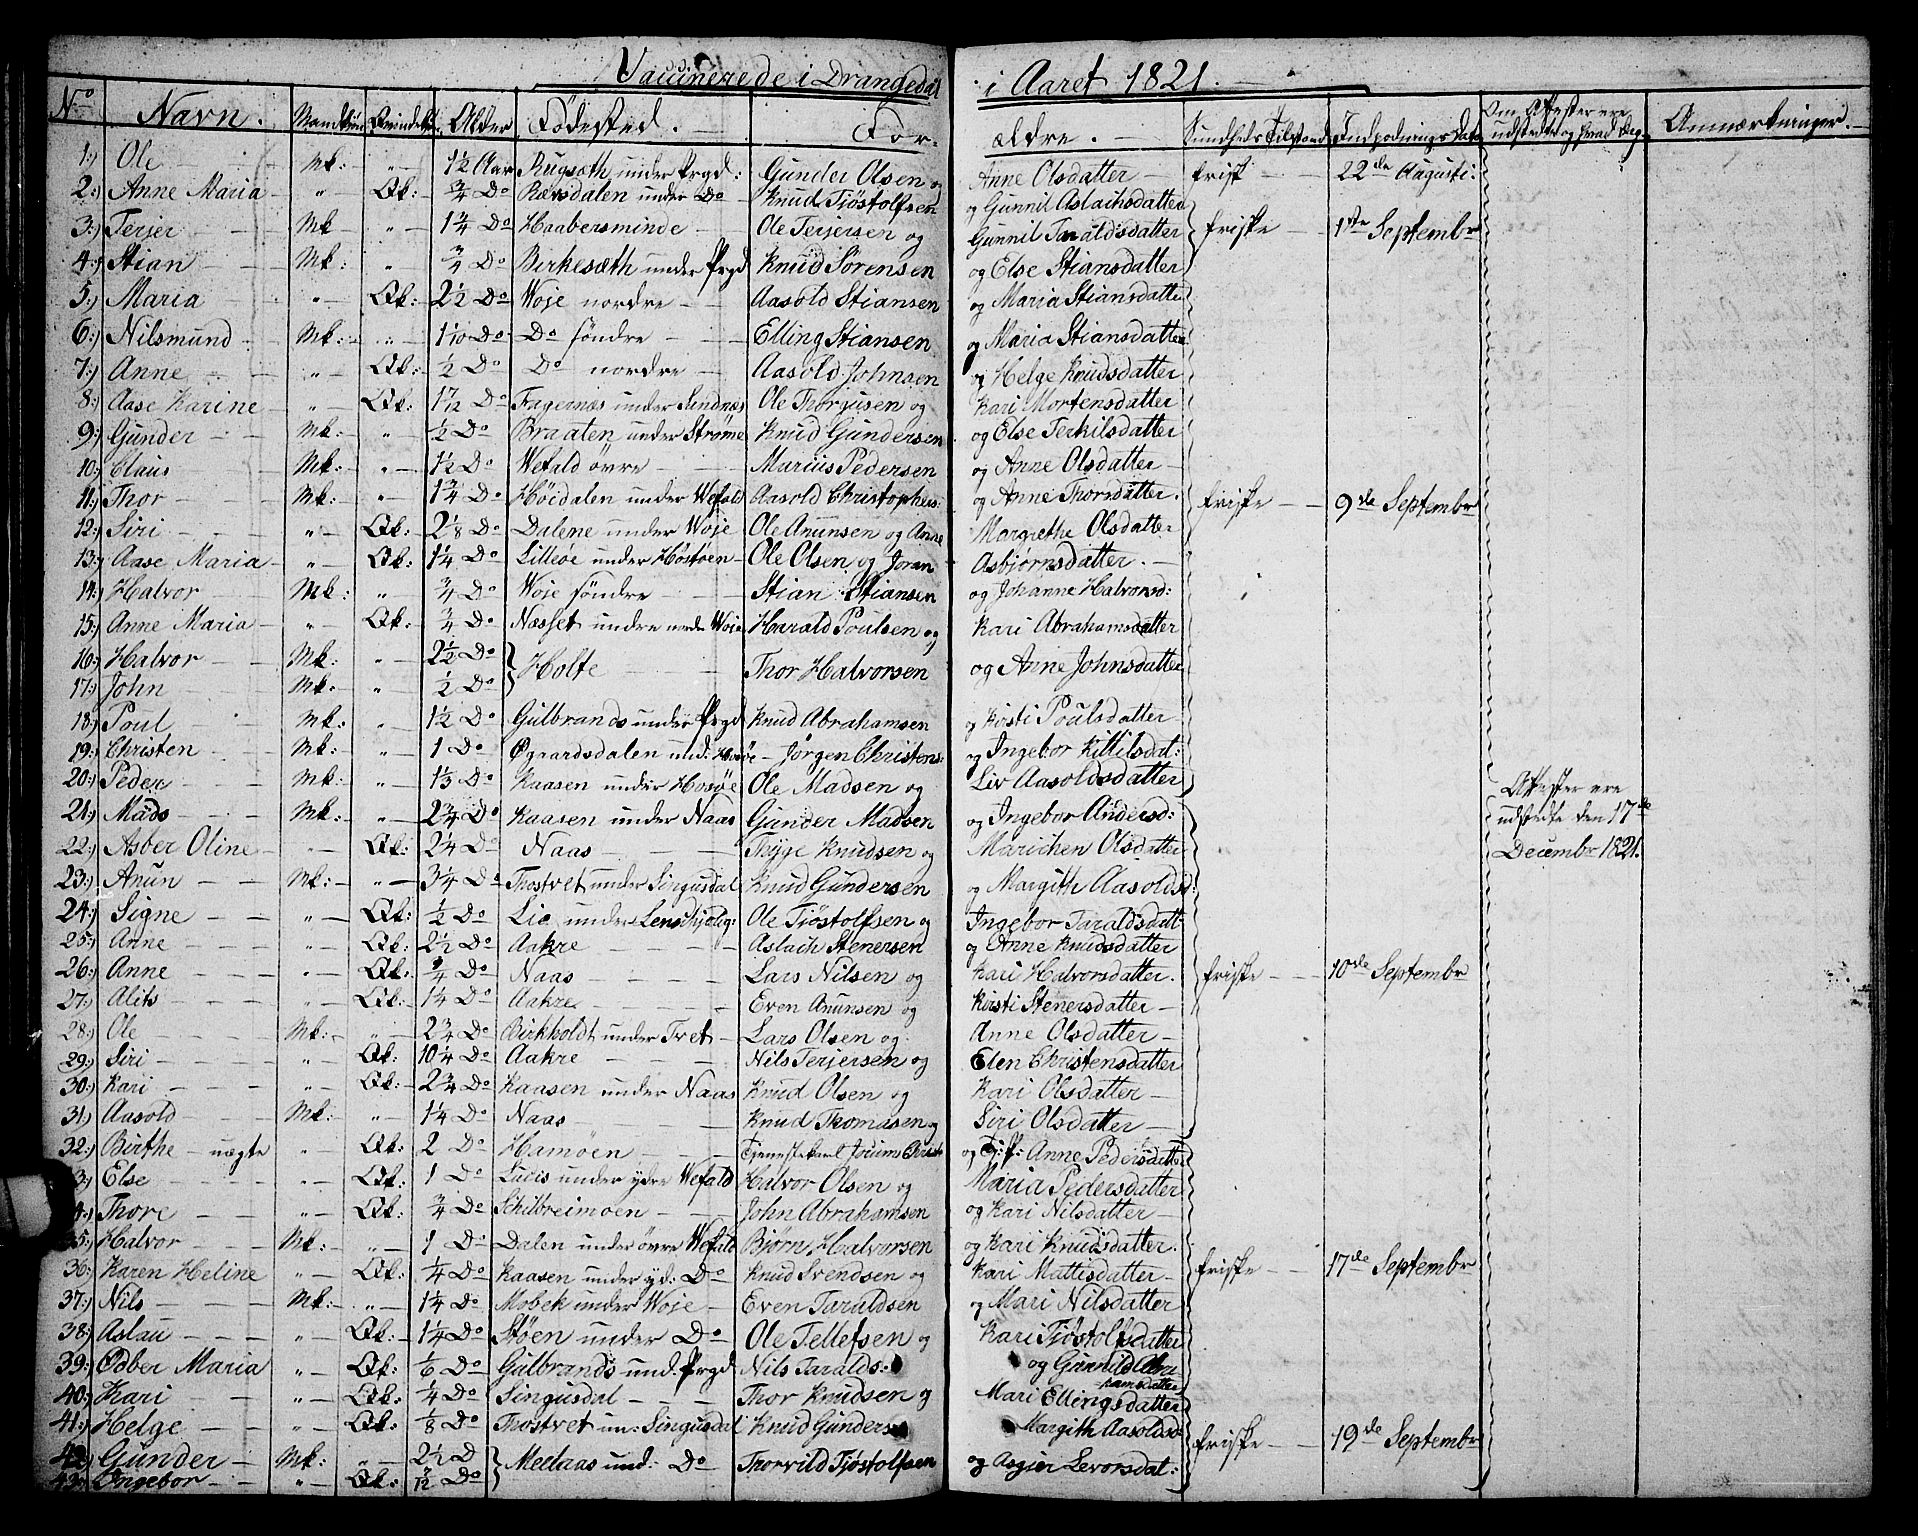 Vaccinerede i Drangedal i Aaret 1821.
No Navn. Mandkøn Qvindekøn Alder Fødested. For- ældre. Sundheds Tilstand Indpodnings Dato Om Attester ere udstedte og hvad Dag Anmærkninger.
1:) Ole Mk: „ 1½ Aar Rugsæth under Prgd: Gunder Olsen og Anne Olsdatter frisk 22de Augusti.
2:) Anne Maria „ Qk: ¾ Do under Do Knud Tjöstolfsen og Gunnil Aslachsdatter
3:) Terjer Mk „ 1¾ Do Haabersminde Ole Terjersen og Gunnil Taraldsdatter friske 1ste Septembr
4:) Stian Mk: „ ¾ Do Birkesæth under Prgd Knud Sørensen og Else Stiansdatter
5:) Maria „ Qk: 2½ Do Woje nordre Aasold Stiansen og Maria Stiansdatter
6:) Nilsmund Mk: „ 1/10 Do Do söndre Elling Stiansen og Maria Stiansdatter
7:) Anne „ Qk: ½ Do Do nordre Aasold Johnsen og Helge Knudsdatter
8:) Aase Karine „ Qk: 1 7/12 Do Fagernæs under Sundnæs Ole Thorjusen og Kari Mortensdatter
9:) Gunder Mk: „ ½ Do Braaten under Strøme Knud Gundersen og Else Terkilsdatter
10:) Claus Mk: „ 1½ Do Wefald övre Marius Pedersen og Anne Olsdatter
11:) Thor Mk: „ 1¾ Do Höidalen under Wefald Aasold Christophers: og Anne Thorsdatter. friske 9de Septembr
12:) Siri „ Qk: 2⅛ Do Dalene under Woje Ole Anunsen og Anne Margrethe Olsdatter
13:) Aase Maria „ Qk: 1¼ Do Lilleøe under Höstöen Ole Olsen og Joran Asbjørnsdatter.
14:) Halvor Mk: „ ¾ Do Woje söndre Stian Stiansen og Johanne Halvorsd:
15:) Anne Maria „ Qk: ¾ Do Næsset under nordre Woje Harald Poulsen og Kari Abrahamsdatter
16:) Halvor Mk: „ 2½ Do } Holte Thor Halvorsen og Anne Johnsdatter
17:) John Mk: „ ½ Do
18:) Poul Mk: „ 1½ Do Gulbrands under Prgd Knud Abrahamsen og Kirsti Poulsdatter
19:) Christen Mk: „ 1 Do Øgardsdalen und: Jørgen Christens: og Ingebor Kittilsdat:
20:) Peder Mk: „ 1⅓ Do Kaasen under Hosöe Ole Madsen og Liv Aasoldsdatter
21:) Mads Mk: „ 2¾ Do Kaasen under Naas Gunder Madsen og Ingebor Andersd: Attester ere udstedte den 17de Decembr 1821.
22:) Asber Oline „ Qk: 2¼ Do Naas Thyge Knudsen og Marichen Olsdatter
23:) Anun Mk: „ 3¼ Do Thostvet under Singusdal Knud Gundersen og Margith Aasoldsd:
24:) Signe „ Qk: ½ Do Lie under Ole Tjöstolfsen og Ingebor Taraldsdatt:
25:) Anne „ Qk: 2½ Do Aakre Aslach Stenersen og Anne Knudsdatter
26:) Anne „ Qk: ¾ Do Naas Lars Nilsen og Kari Halvorsdatter. friske 10de Septembr
27:) Alits „ Qk: 1¼ Do Aakre Even Anunsen og Kirsti Stenersdatter
28:) Ole Mk: „ 2¾ Do Birkholdt under Tvet Lars Olsen og Anne Olsdatter
29:) Siri „ Qk: 10¼ Do Aakre Nils Terjersen og Elen Christensdatter
30:) Kari „ Qk: 2¾ Do Kaasen under Naas Knud Olsen og Kari Olsdatter
31:) Aasold Mk: „ 1¼ Do Naas Knud Thomasen og Siri Olsdatter
32:) Birthe uægte „ Qk: 2 Do Hamöen Tjennestekarl og Tj:P: Anne Pedersdatter
3:) Else „ Qk: 1 Do Lucis under ydre Wefald Halvor Olsen og Maria Pedersdatter
4:) Thore „ Qk: ¾ Do Schilbreimoen John Abrahamsen og Kari Nilsdatter
35:) Halvor Mk: „ 1 Do Dalen under övre Wefald Bjørn Halvorsen og Kari Knudsdatter.
36:) Karen Heline „ Qk: ¼ Do Kaasen under yd: Do Knud Svendsen og Kari Mattisdatter friske 17de Septembr
37:) Nils Mk: „ 1¼ Do Mobek under Woje Even Taraldsen og Mari Nilsdatter
38:) Aslau „ Qk: 1¼ Do Støen under Do Ole Tellefsen og Kari Tjöstolfsdatter
39:) Odber Maria „ Qk: ⅙ Do Gulbrands und: Prgd Nils Taralds: og Gunnild Abrahamsdatter
40:) Kari „ Qk: ¼ Do Singusdal Thor Knudsen og Mari Ellingsdatter
41:) Helge „ Qk: ⅛ Do Thostvet un: Singusdal Knud Gunderse Margith Aasoldsd: friske 19de Septembr
42:) Gunder Mk: „ 2½ D } Meelaas und: Do Thorvild Tjöstolfsen og Asgier Levorsdat:
43:) Ingebor „ Qk: 7/12 Do